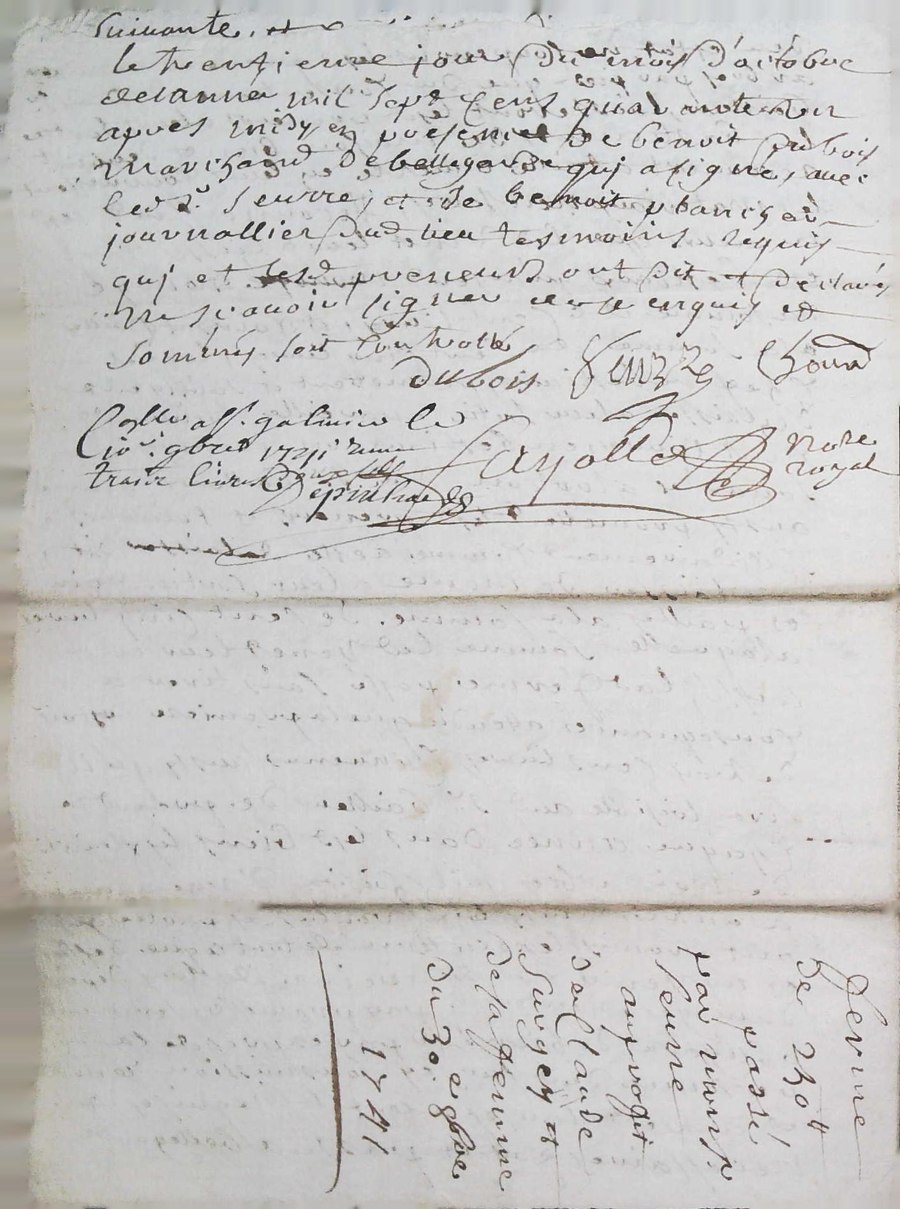 suivante, et
le trentieme jour du mois d'octobre
de lannee mil sept cens quarante un
apres midy en presence de benoit dubois
marchand de bellegarde qui a signé, avec
led sr. seurre, et de benoit planchet
journallier dud lieu tesmoins requis
qui et lesd preneurs ont dit et declarés
ne scavoir signer de ce enquis et
sommés soit controllé
dubois Seurre
Collé a st. galmier le
10e. 9bre 1741
trante livres
Fayolle
Notre
royal
ferme
de 230 #
passé
par
seurre
au profit
de claude
Surgey et
de sa femme
du 30 e 8bre
1741